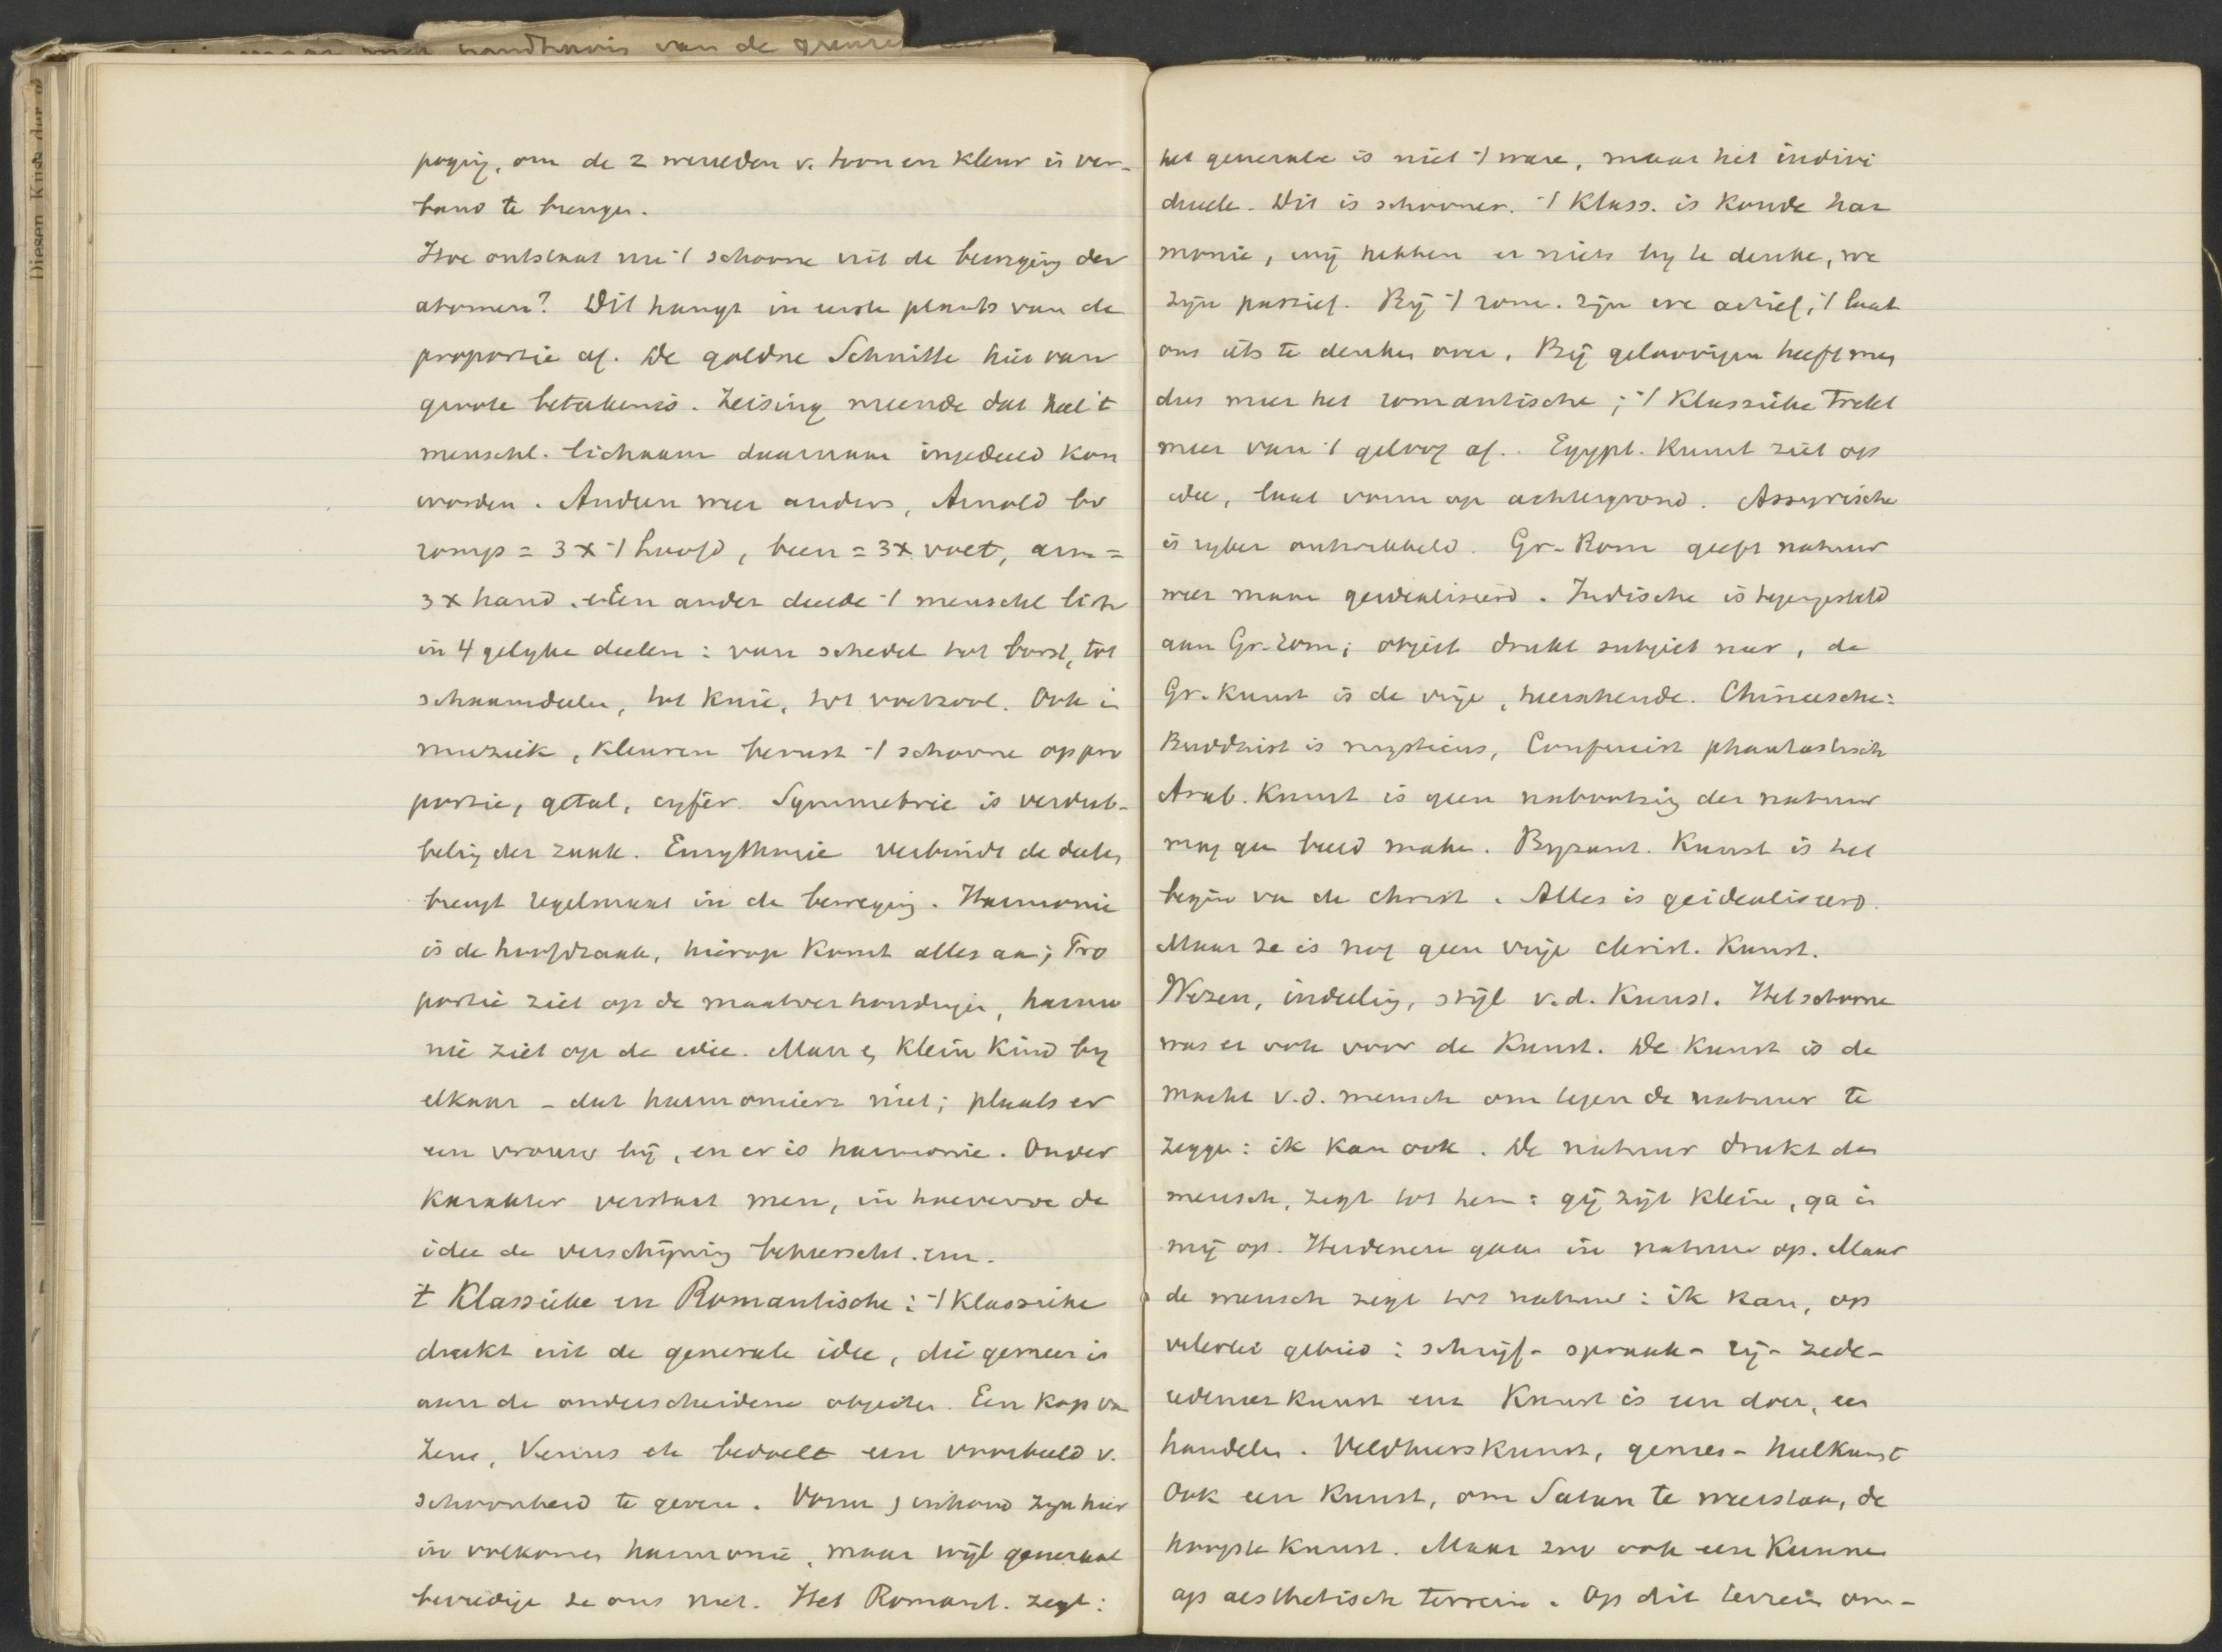 handhavis van de grenze
Diesen Kude der
poging, om de 2 werelden v. toon en kleur in ver-
band te brengen.
Hoe ontstaat nu 't schoone uit de beweging der
atomen? Dit hangt in eerste plaats van de
proportie af. De goldne Schnitte hiervan
groote beteekenis. Zeising meende dat heel 't
menschl. lichaam daarnaar ingedeeld kon
worden. Andren weer anders, Arnold bv
romp = 3 x 't hoofd, been = 3 x voet, arm =
3 x hand. Een ander deelde 't menschl lich
in 4 gelyke deelen: van schedel tot borst, tot
schaamdeelen, tot knie, tot voetzool. Ook in
muziek, kleuren berust 't schoone op pro
portie, getal, cyfer. Symmetrie is verdub-
beling der zaak. Eurythmie verbindt de deelen,
brengt regelmaat in de beweging. Harmonie
is de hoofdzaak, hierop komt alles aan; Pro
portie ziet op de maatverhoudingen, harmo
nie ziet op de idee. Man en klein kind by
elkaar - dat harmonieert niet; plaats er
een vrouw bij, en er is harmonie. Onder
karakter verstaat men, in hoeverre de
idee de verschijning beheerscht. enz.
't Klassieke en Romantische: 't klassieke
drukt uit de generale idee, die gemeen is
aan de onderscheidene objecten. Een kop van
Zeus, Venus etc bedoelt een voorbeeld v.
schoonheid te geven. Vorm en inhoud zyn hier
in volkomen harmonie, maar wijl generaal
bevredige ze ons niet. Het Romant. zegt:
het generale is niet 't ware, maar het indivi
dueele. Dit is schooner. 't Klass. is koude har
monie, wij hebben er niets by te denke, we
zyn passief. Bij 't rom. zijn we actief, 't laat
ons iets te denken over. Bij geloovigen heeft men
dus meer het romantische; 't Klassieke trekt
meer van 't geloof af. Egypt. Kunst ziet op
idee, laat vorm op achtergrond. Assyrische
is ryker ontwikkeld. Gr-Rom geeft natuur
weer maar geidealiseerd. Indische is tegengesteld
aan Gr-rom; object drukt subject neer, de
Gr. kunst is de vrije, heerschende. Chineesche:
Buddhist is mysticus, Confucist phantastisch
Arab. Kunst is geen nabootsing der natuur
mag gen beeld maken. Byzant. Kunst is het
begin van de christ. Alles is geidealiseerd.
Maar ze is nog geen vrije christ. Kunst.
Wezen, indeeling, stijl v.d. Kunst. Het schoone
was er ook voor de Kunst. De kunst is de
macht v.d. mensch om tegen de natuur te
zeggen: ik kan ook. De natuur drukt den
mensch, zegt tot hem: gij zijt klein, ga in
mij op. Heidenen gaan in natuur op. Maar
de mensch zegt tot natuur: ik kan, op
velerlei gebied: schrijf- spraak- rij- zede-
redeneerkunst enz Kunst is een doen, een
handelen. Veldheerskunst, genees- heelkunst
Ook een kunst, om Satan te weerstaan, de
hoogste kunst. Maar zoo ook een kunnen
op aesthetisch terrein. Op dit terrein om-